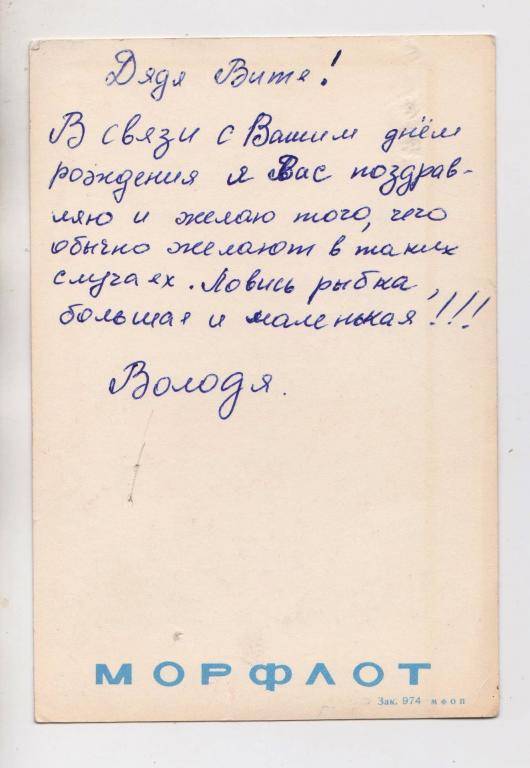 Дядя Витя!
В связи с Вашим днём
рождения я Вас поздрав-
ляю и желаю того, чего
обычно желают в таких
случаях. Ловись рыбка,
большая и маленькая!!!
Володя.
МОРФЛОТ
Зак. 974 мфоп